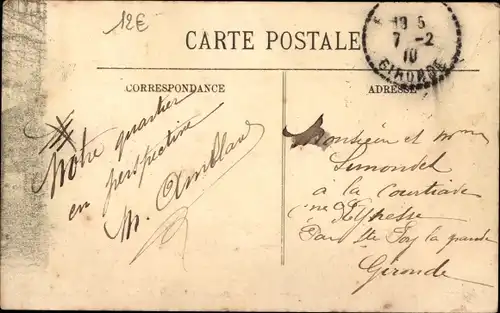 12€
CARTE POSTALE
19 5
7 -2
10
GIRONDE
CORRESPONDANCE
ADRESSE
Notre quartier
en perspective
M.
Monsieur et Mme
Simondet
à la Courtiade
Par Ste Foy la grande
Gironde